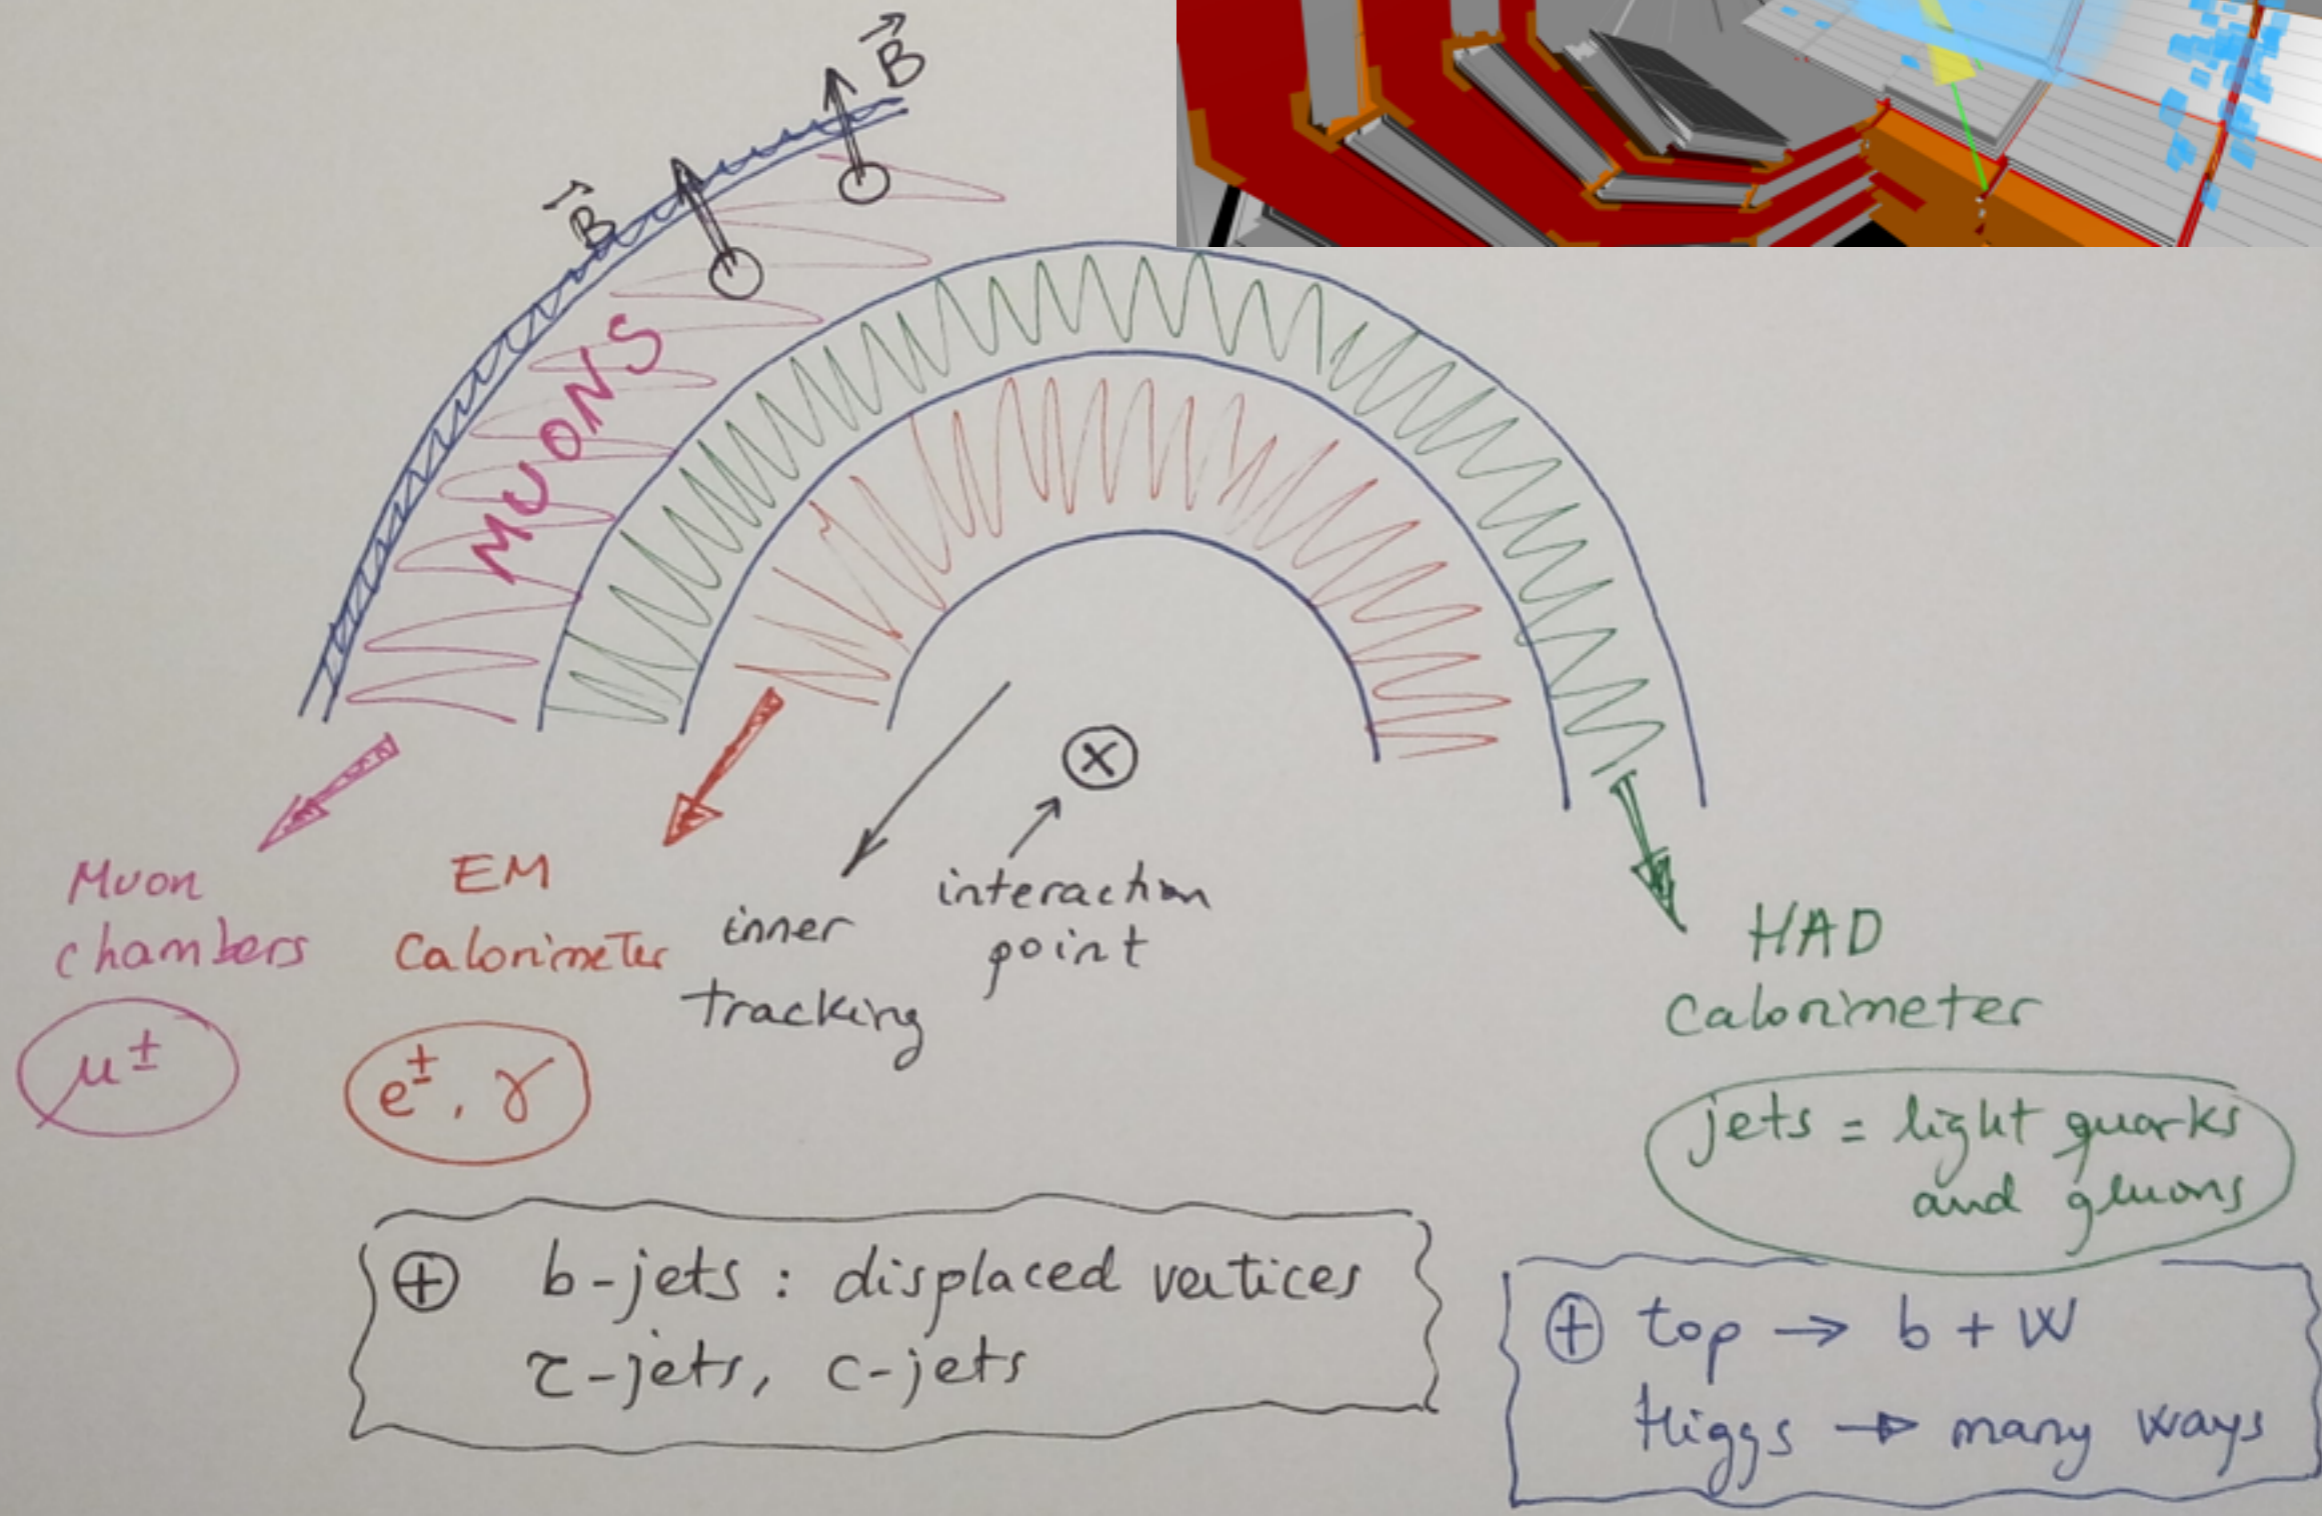 B⃗
B⃗
MUONS
Muon
chambers
μ±
EM
Calorimeter
e±, γ
inner
tracking
interaction
point
HAD
Calorimeter
jets = light quarks
and gluons
⊕ b-jets : displaced vertices
τ-jets, c-jets
⊕ top → b + W
Higgs → many ways